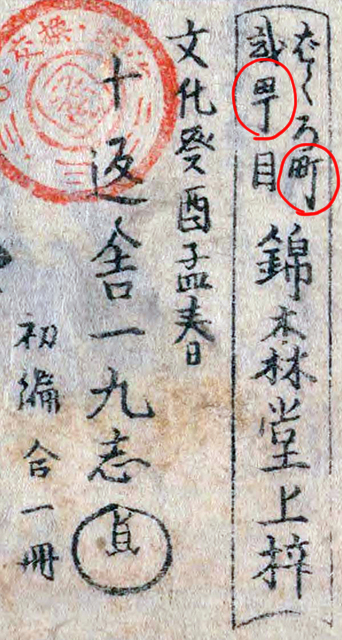 ばくろ町
弐甼目
錦森堂上梓
文化癸酉孟春
十返舎一九志
貞
初編 合一冊